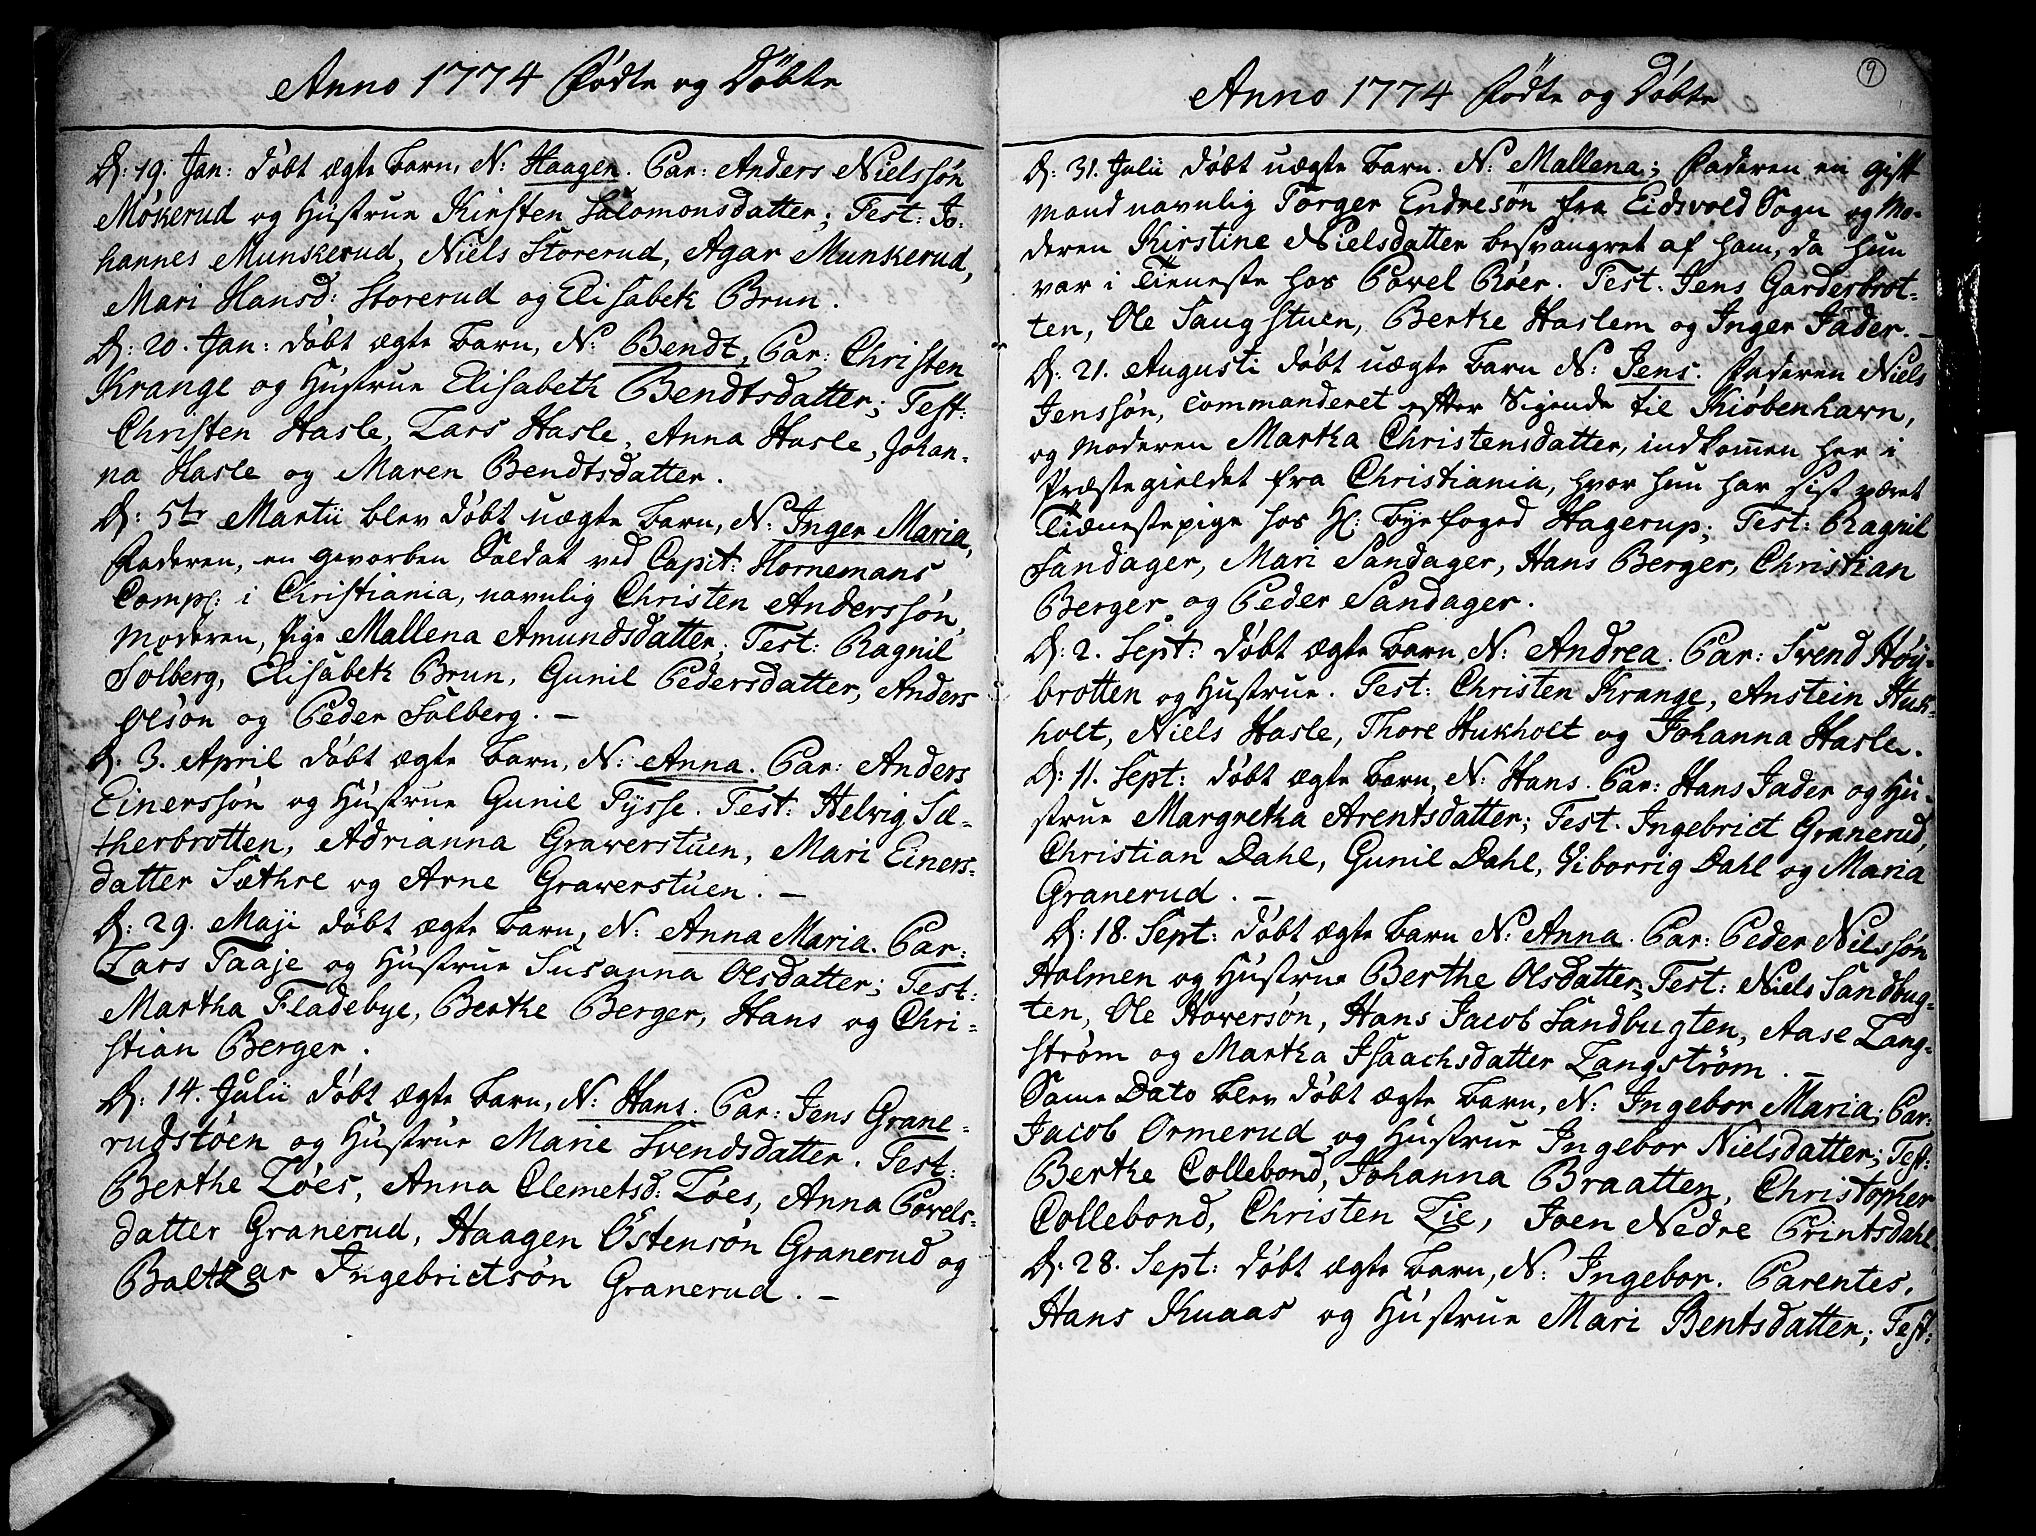 Anno 1774 Födte og Döbte
D: 19. Jan: döbt ægte Barn, N: Haagen. Par: Anders Nielssön
Mökerud og Hustrue Kirsten Salomonsdatter; Test: Jo-
hannes Munkerud, Niels Storerud, Agar Munkerud,
Mari Hansd: Storerud og Elisabeth Brun.
D: 20. Jan: döbt ægte Barn, N: Bendt, Par: Christen
Krange og Hustrue Elisabeth Bendtsdatter; Test:
Christen Hasle, Lars Hasle, Anna Hasle, Johan-
na Hasle og Maren Bendtsdatter.
D: 5te Martii blev döbt uægte Barn, N: Inger Maria,
Faderen, en gevorben Soldat ved Capit: Hornemans
Comp: i Christiania, navnlig Christen Anderssön,
Moderen, Pige Mallena Amundsdatter; Test: Ragnil
Solberg, Elisabeth Brun, Gunil Pedersdatter, Anders
Olsön og Peder Solberg. -
D: 3. April döbt ægte Barn, N: Anna. Par: Anders
Einerssön og Hustrue Gunil Tysse. Test: Helvig Sæ-
therbrotten, Adrianna Graverstuen, Mari Einers-
datter Sæthre og Arne Graverstuen. -
D: 29. Maji döbt ægte Barn, N: Anna Maria. Par:
Lars Taaje og Hustrue Susanna Olsdatter; Test:
Martha Fladebye, Berthe Berger, Hans og Chri-
stian Berger.
D: 14. Julii döbt ægte Barn, N: Hans. Par: Jens Grane-
rudstöen og Hustrue Marie Svendsdatter. Test:
Berthe Löes, Anna Clemetsd: Löes, Anna Povels-
datter Granerud, Haagen Östensön Granerud og
Baltzar Ingebrictsön Granerud. -
9
Anno 1774 Födte og Döbte
D: 31. Julii döbt uægte Barn. N: Mallena; Faderen en gift
Mand navnlig Torger Endresön fra Eidsvold Sogn og Mo-
deren Kirstine Nielsdatter besvangret af ham, da hun
var i Tieneste hos Povel Röer. Test: Jens Garderbrot-
ten, Ole Saugstuen, Berthe Haslem og Inger Jäder. -
D: 21. Augusti döbt uægte Barn N: Jens. Faderen Niels
Jenssön, Commanderet efter Sigende til Kiöbenhavn,
og Moderen Martha Christensdatter, indkommen her i
Præstegieldet fra Christiania, hvor hun har sist været
Tienestepige hos H: Byefoged Hagerup; Test: Ragnil
Sandager, Mari Sandager, Hans Berger, Christian
Berger og Peder Sandager.
D: 2. Sept: döbt ægte Barn, N: Andrea. Par: Svend Höy-
brotten og Hustrue. Test: Christen Krange, Anstein Huk-
holt, Niels Hasle, Thore Hukholt og Johanna Hasle.
D: 11. Sept: döbt ægte Barn, N: Hans. Par: Hans Jader og Hu-
strue Margretha Arentsdatter; Test. Ingebrict Granerud,
Christian Dahl, Gunil Dahl, Viborrig Dahl og Maria
Granerud. -
D: 18. Sept: döbt ægte Barn N: Anna. Par: Peder Nilssön
Holmen og Hustrue Berthe Olsdatter, Test: Niels Sandbug-
ten, Ole Hoversön, Hans Jacob Sandbugten, Aase Lang-
ström og Martha Isaachsdatter Langström. -
Same Dato blev döbt ægte Barn, N: Ingebor Maria; Par:
Jacob Ormerud og Hustrue Ingebor Nielsdatter; Test:
Berthe Collebond, Johanna Braatten, Christopher
Collebond, Christen Lie, Joen Nedre Printsdahl.
D: 28. Sept: döbt ægte Barn, N: Ingebor. Parentes.
Hans Knaas og Hustrue Mari Bentsdatter; Test: